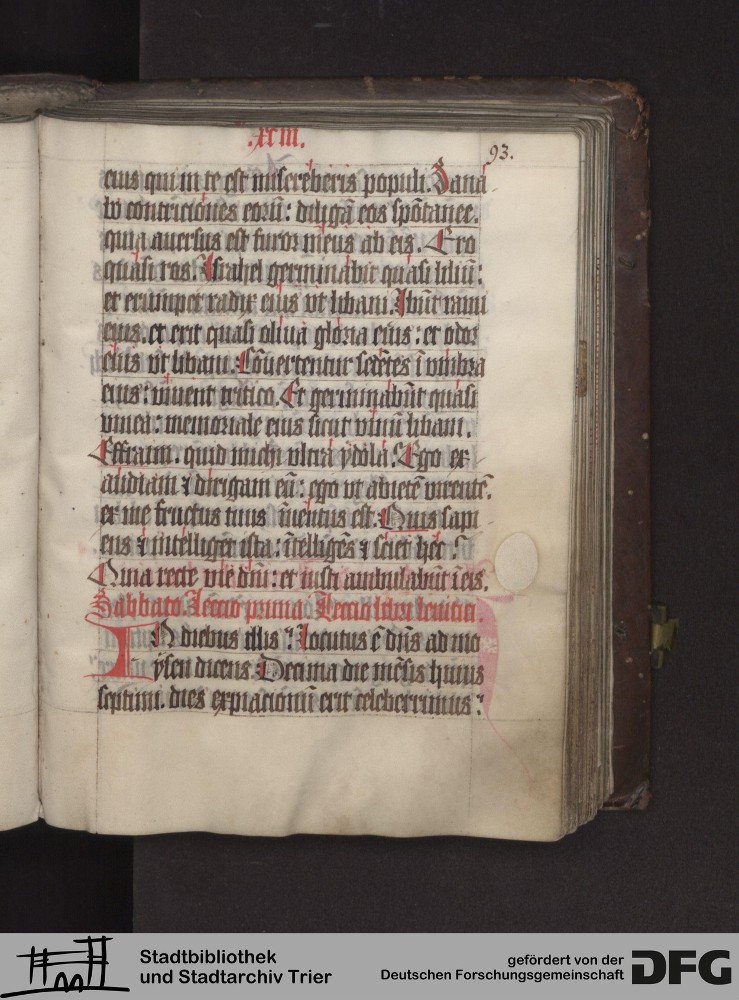 .xciii.
93.
eius qui in te est misereberis populi. Sana
bo contriciones eorū: diligā eos spōtanee.
quia auersus est furor meus ab eis. Ero
quasi ros. Israhel germinabit quasi liliū:
et erumpet radix eius vt libani. Ibūt rami
eius. et erit quasi oliua gloria eius: et odor
eius vt libani. Cōuertentur sedētes ī vmbra
eius: viuent tritico. Et germinabūt quasi
vinea: memoriale eius sicut vinū libani.
Effraim. quid michi vltra ydola? Ego ex
audiam ⁊ dirigam eū: ego vt abietē virentē.
ex me fructus tuus īuentus est. Quis sapi
ens ⁊ intelliget ista: ītelligēs ⁊ sciet hec?
Quia recte vie dn̄i: et iusti ambulabūt ī eis.
Sabbato. Leccio prima Leccio libri leuitici.
IN diebus illis: Locutus ē dn̄s ad mo
ysen dicens. Decima die mēsis huius
septimi. dies expiacionū erit celeberrimus:
Stadtbibliothek
und Stadtarchiv Trier
gefördert von der
Deutschen Forschungsgemeinschaft
DFG